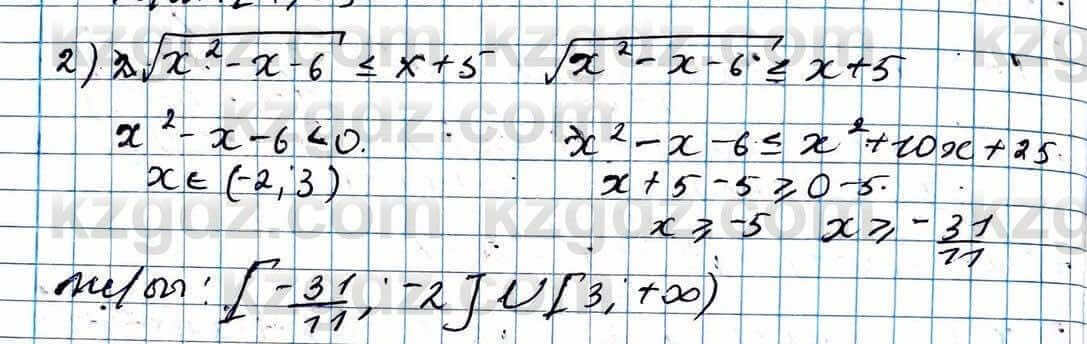 2) √x² - x - 6 ≤ x + 5   √x² - x - 6 ≤ x + 5
x² - x - 6 < 0.   x² - x - 6 ≤ x² + 10x + 25
x ∈ (-2; 3)   x + 5 - 5 ≥ 0 - 5.
x ≥ -5   x ≥ -31/11
[-31/11; -2] ∪ [3; +∞)
kzgdz.com